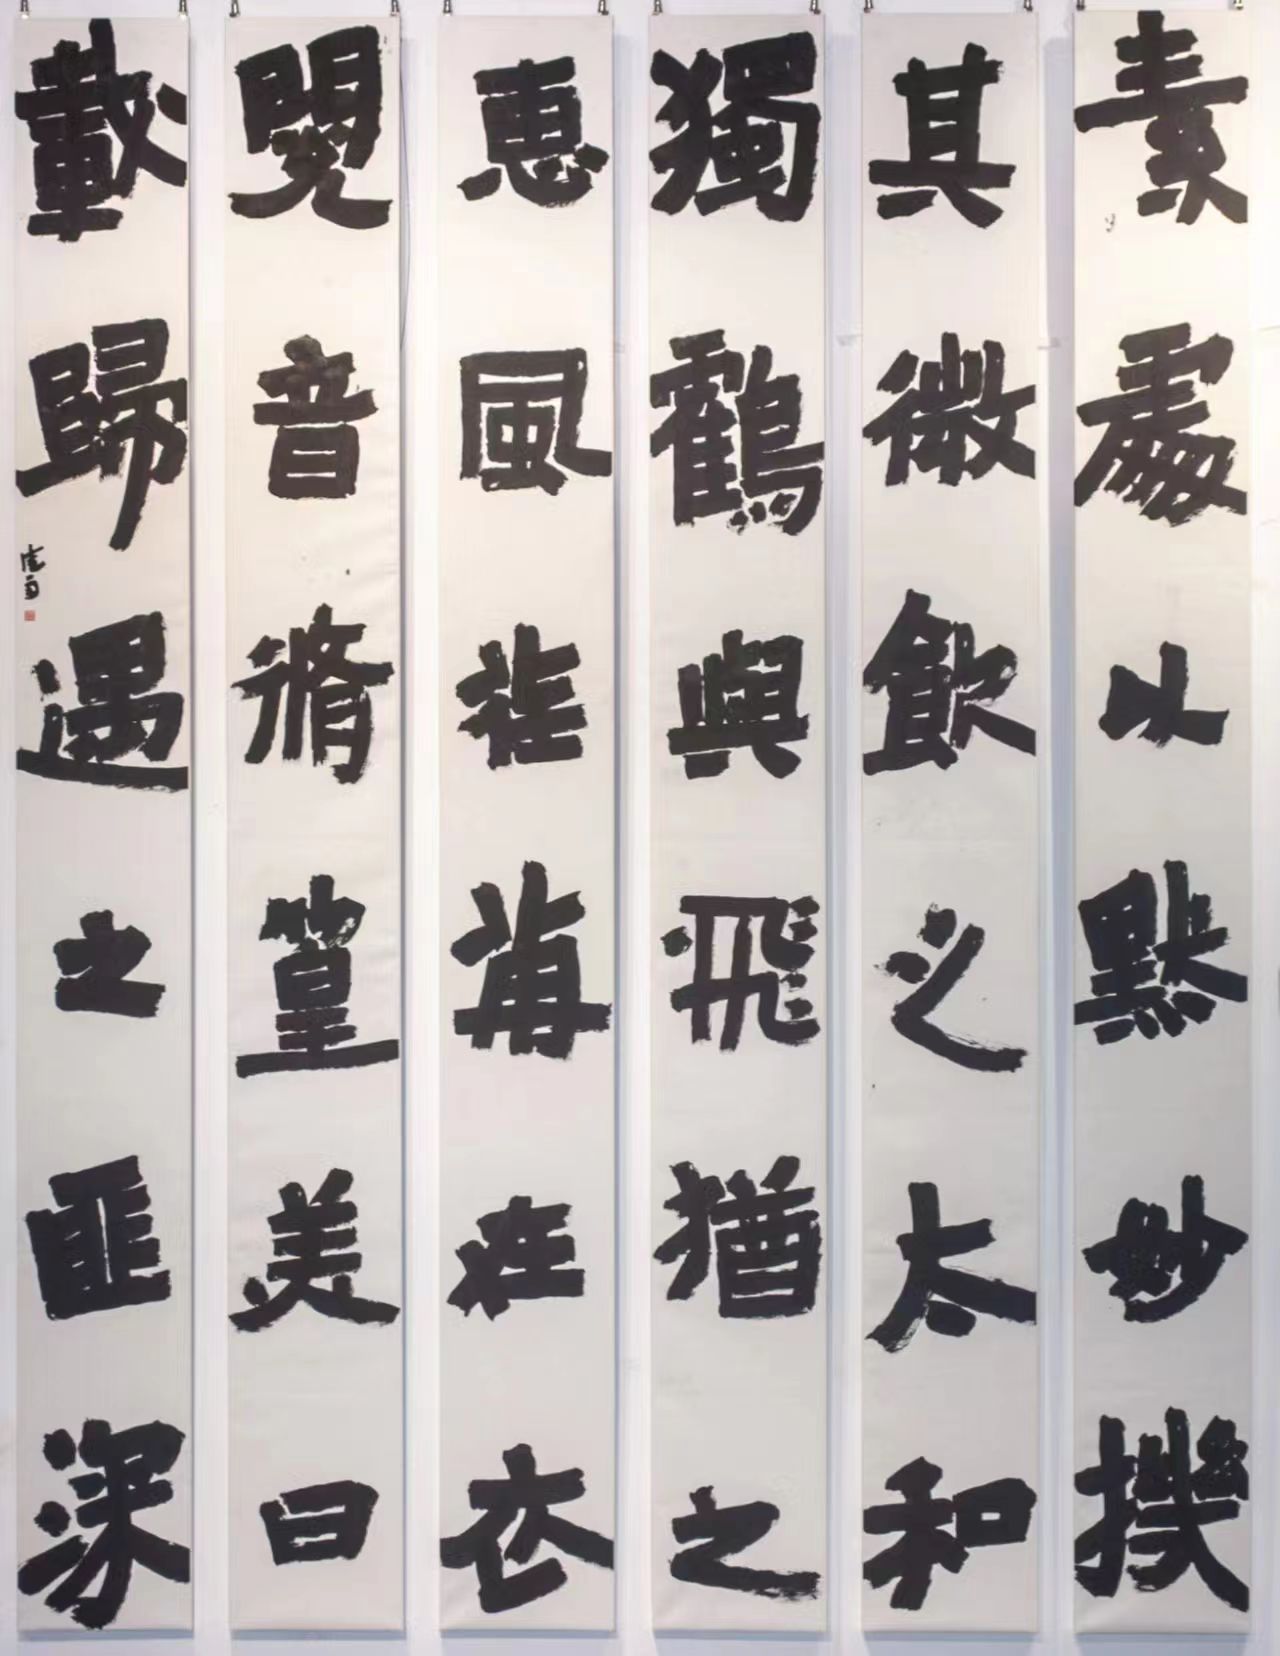 素處以默妙機
其微飲之太和
獨鶴與飛猶之
惠風荏苒在衣
閱音脩篁美曰
載歸遇之匪深